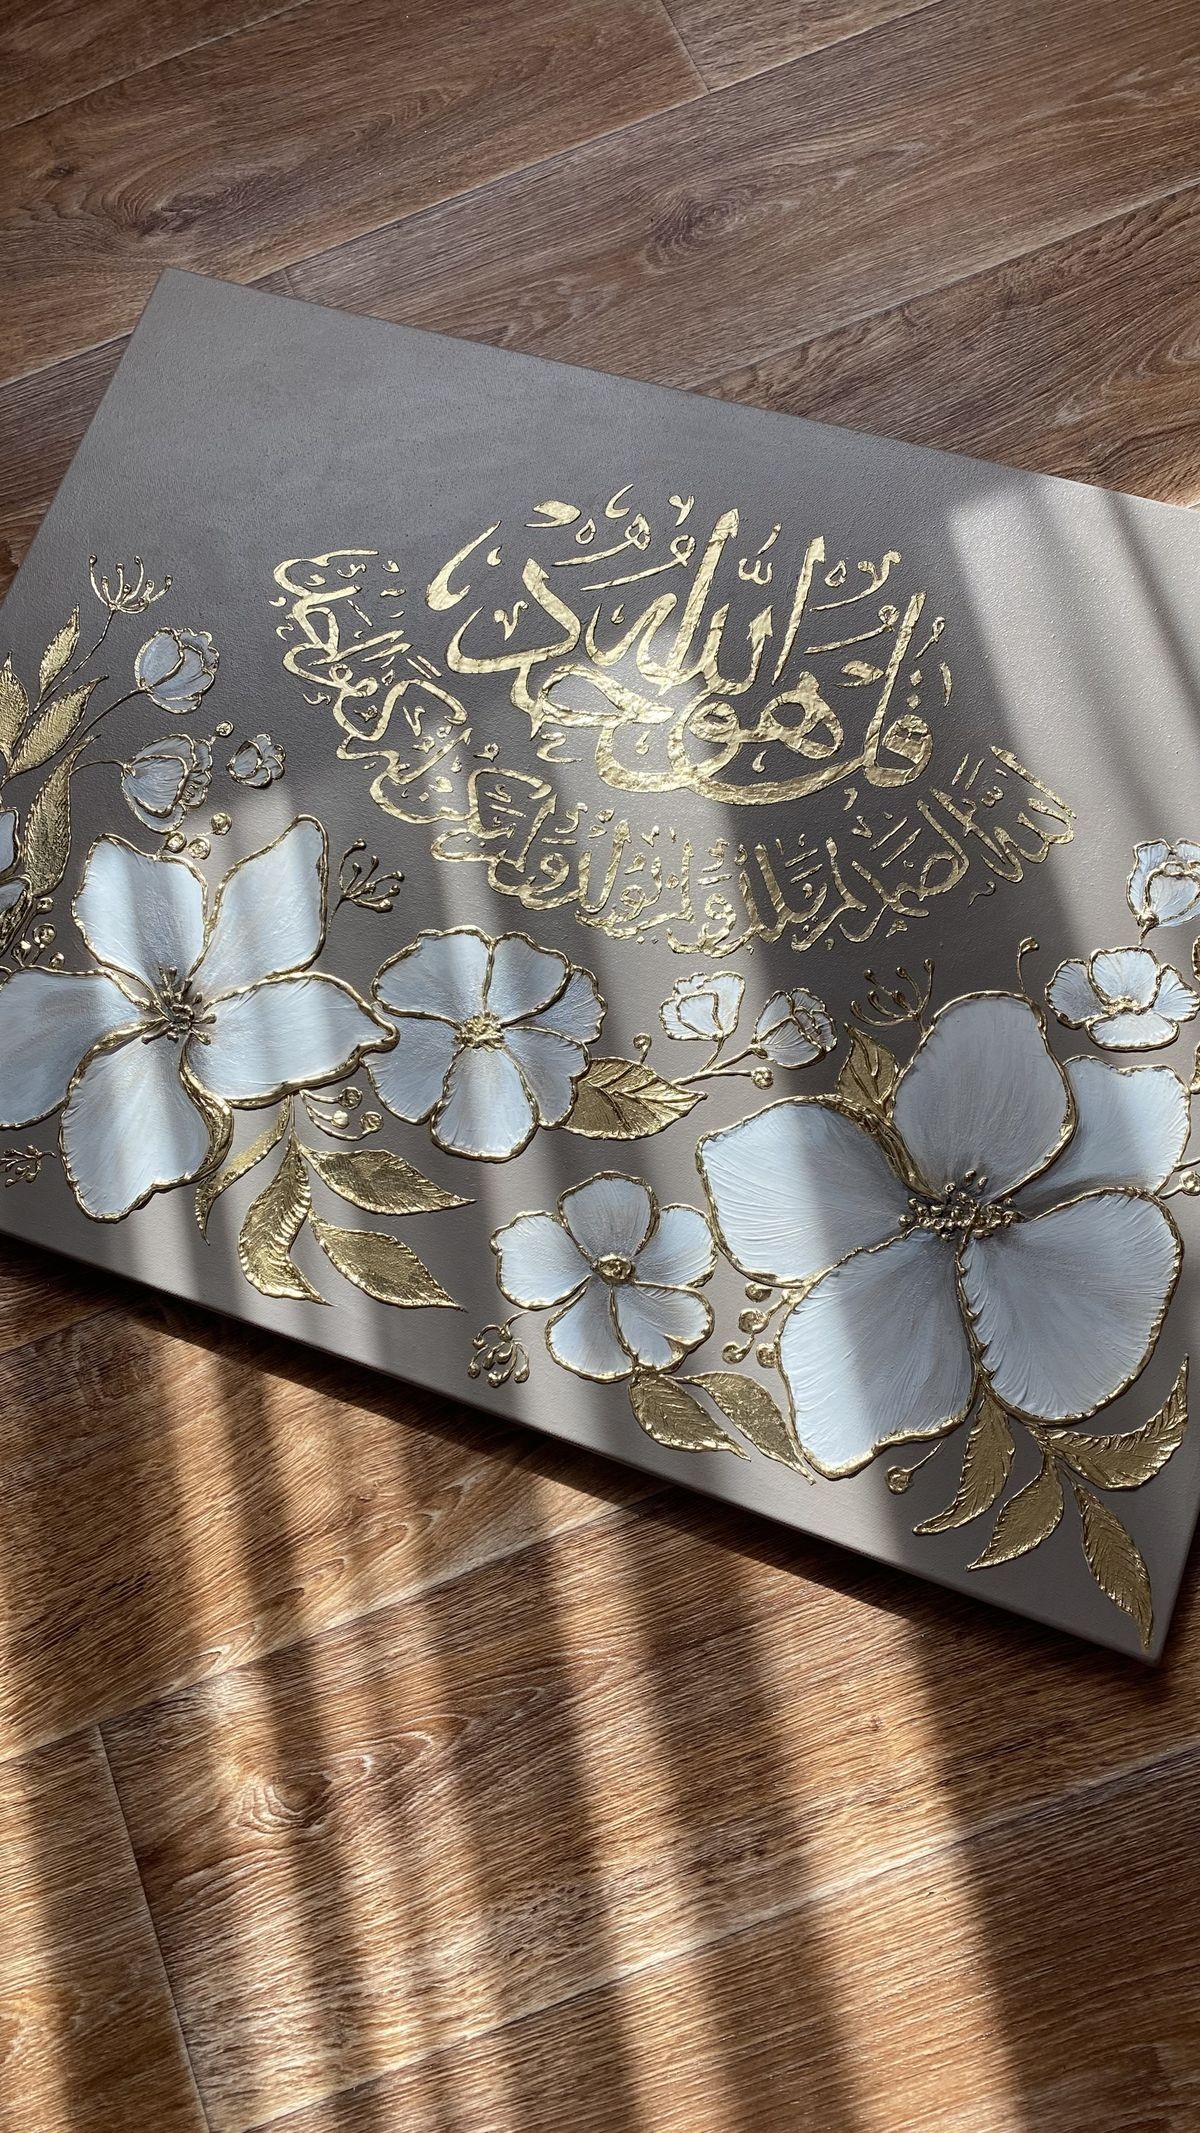 قُلْ هُوَ اللَّهُ أَحَدٌ
اللَّهُ الصَّمَدُ لَمْ يَلِدْ وَلَمْ يُولَدْ وَلَمْ يَكُنْ لَهُ كُفُوًا أَحَدٌ